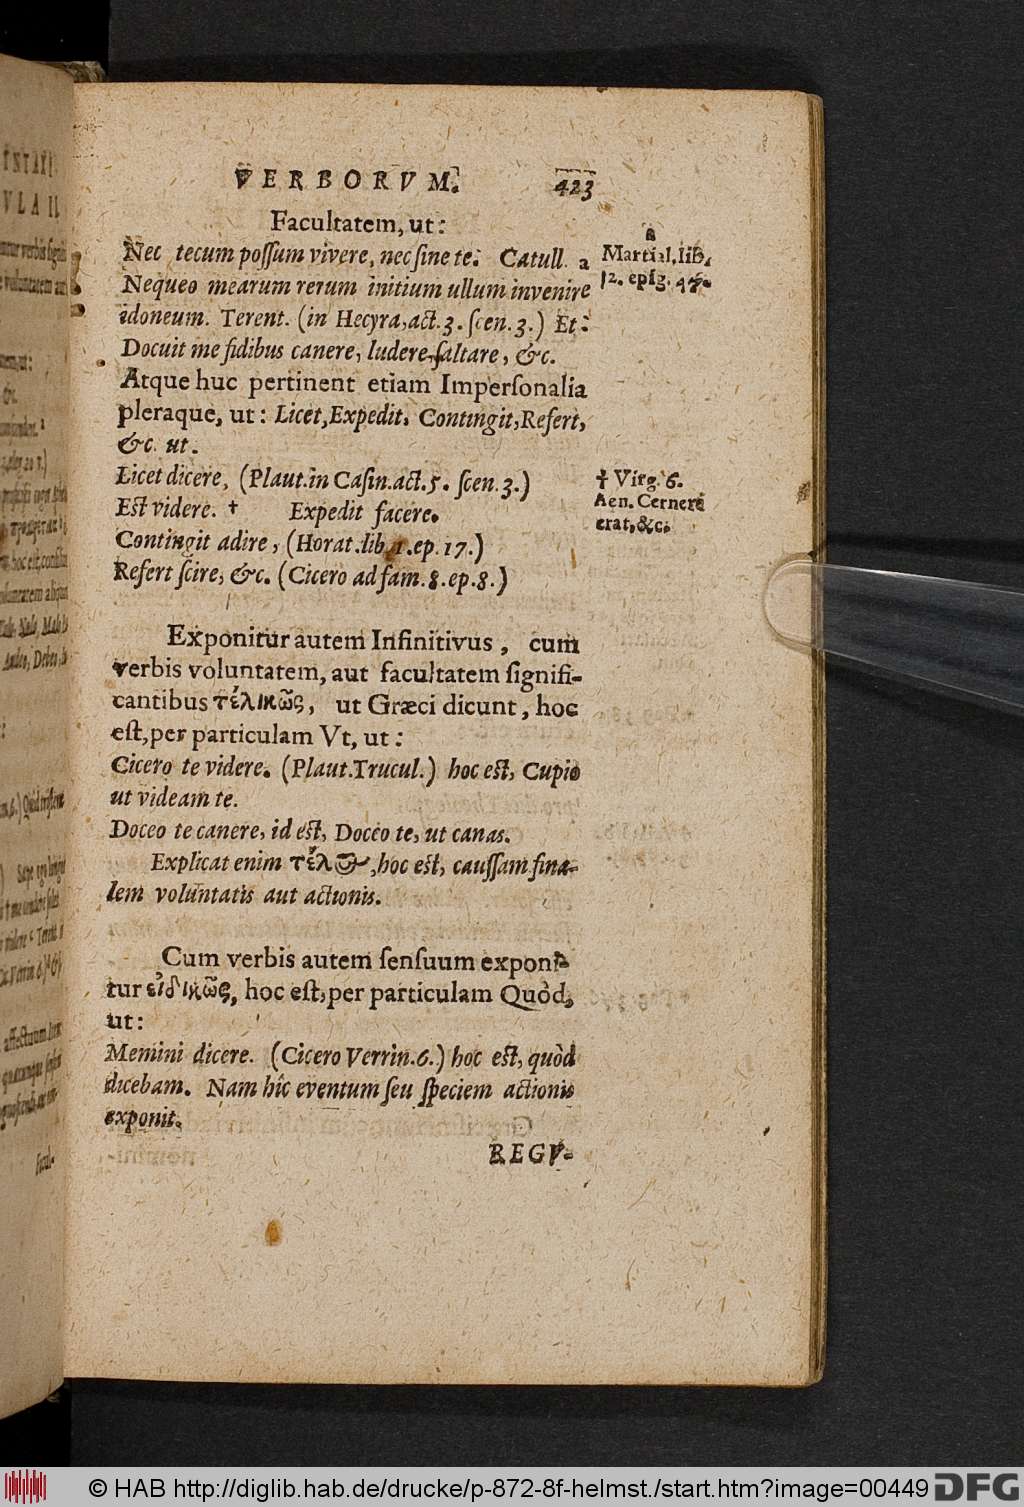 VERBORVM. 423
Facultatem, ut:
Nec tecum poſſum vivere, nec ſine te. Catull. a
Nequeo mearum rerum initium ullum invenire
idoneum. Terent. (in Hecyra, act. 3. ſcen. 3.) Et:
Docuit me fidibus canere, ludere, ſaltare, &c.
Atque huc pertinent etiam Imperſonalia
pleraque, ut: Licet, Expedit, Contingit, Refert,
&c. ut.
Licet dicere, (Plaut. in Caſin. act. 5. ſcen. 3.)
Eſt videre. † Expedit facere.
Contingit adire, (Horat. lib. 1. ep. 17.)
Refert ſcire, &c. (Cicero ad fam. 8. ep. 8.)
a
Martial. lib.
12. epig. 47.
† Virg. 6.
Aen. Cernere
erat, &c.
Exponitur autem Infinitivus, cum
verbis voluntatem, aut facultatem ſignifi-
cantibus τέλικῶς, ut Græci dicunt, hoc
eſt, per particulam Vt, ut:
Cicero te videre. (Plaut. Trucul.) hoc eſt, Cupio
ut videam te.
Doceo te canere, id eſt, Doceo te, ut canas.
Explicat enim τέλ@, hoc eſt, cauſſam fina-
lem voluntatis aut actionis.
Cum verbis autem ſenſuum exponi-
tur εἰδικῶς, hoc eſt, per particulam Quòd,
ut:
Memini dicere. (Cicero Verrin. 6.) hoc eſt, quòd
dicebam. Nam hîc eventum ſeu ſpeciem actionis
exponit.
REGV-
© HAB http://diglib.hab.de/drucke/p-872-8f-helmst./start.htm?image=00449 DFG